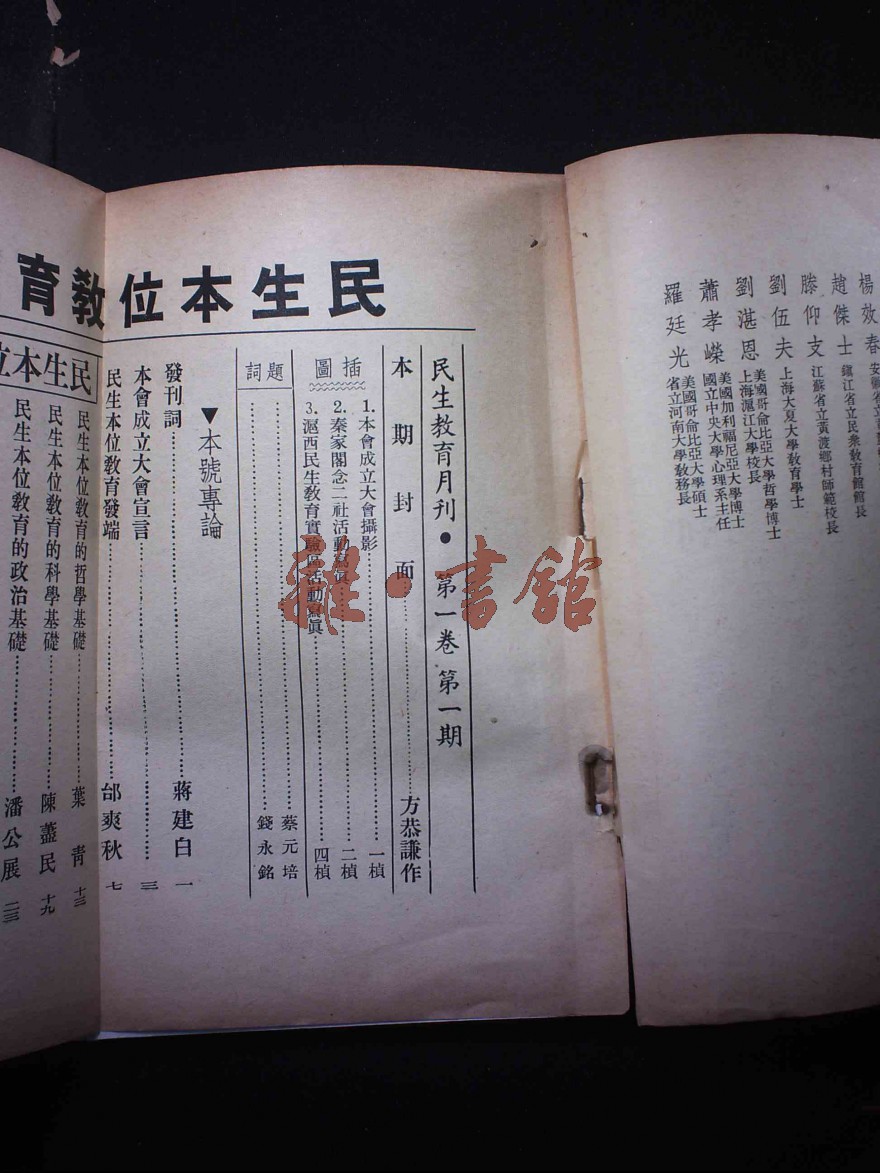 楊效春
趙傑士 鎮江省立民衆教育館館長
滕仰支 江蘇省立黃渡鄉村師範校長
劉伍夫 上海大夏大學教育學士
劉湛恩 美國哥倫比亞大學哲學博士
上海滬江大學校長
蕭孝嶸 美國加利福尼亞大學博士
國立中央大學心理系主任
羅廷光 美國哥倫比亞大學碩士
省立河南大學教務長
民生本位教育
民生教育月刊●第一卷第一期
本期封面……方恭謙作
插圖
1.本會成立大會攝影……一楨
2.秦家閣念二社活動寫眞……二楨
3.滬西民生教育實驗區活動寫眞……四楨
題詞
……蔡元培
……錢永銘
▼本號專論
發刊詞……蔣建白 一
本會成立大會宣言……三
民生本位教育發端……邰爽秋 七
民生本位
民生本位教育的哲學基礎……葉青 十三
民生本位教育的科學基礎……陳藎民 十九
民生本位教育的政治基礎……潘公展 二三
雜·書館